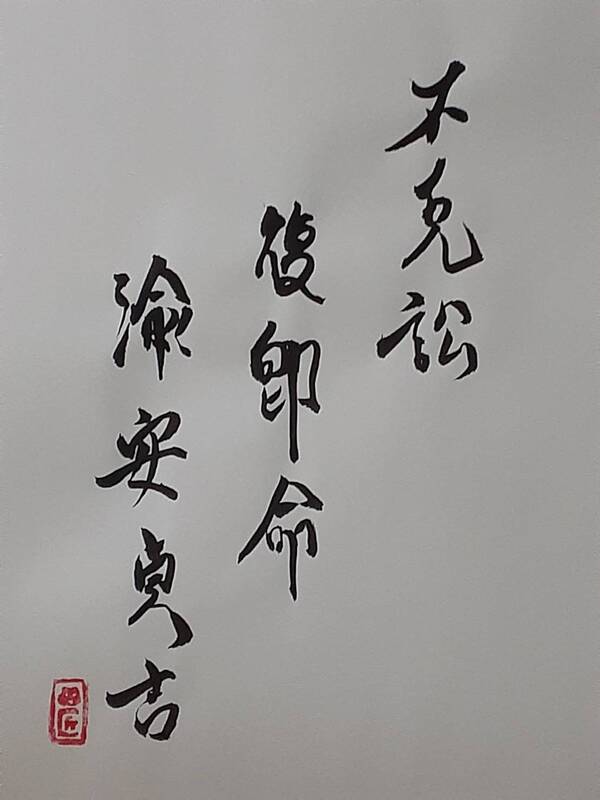 不克訟
復卽命
渝安貞吉